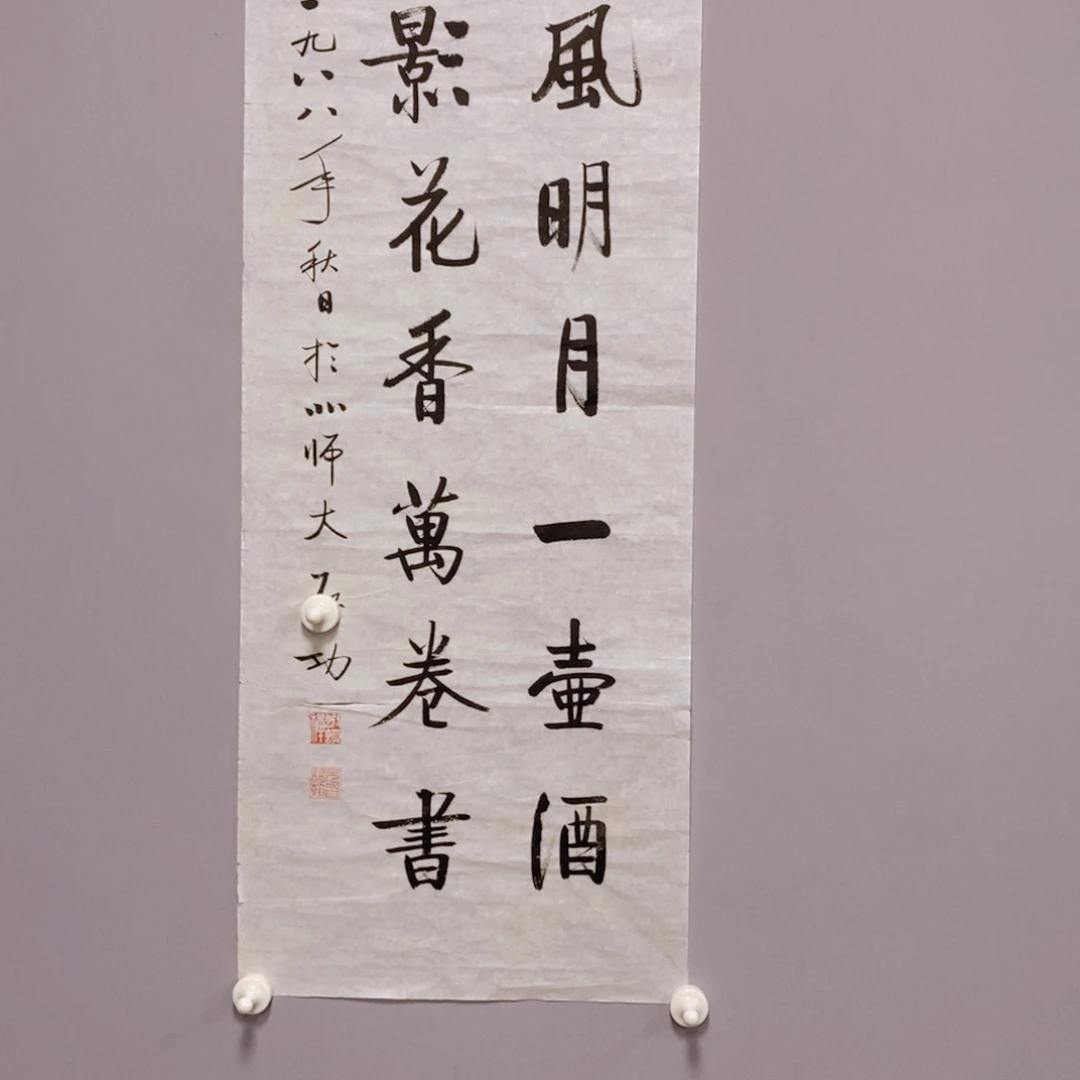 風明月一壺酒
影花香萬卷書
一九八八年秋日於北师大启功